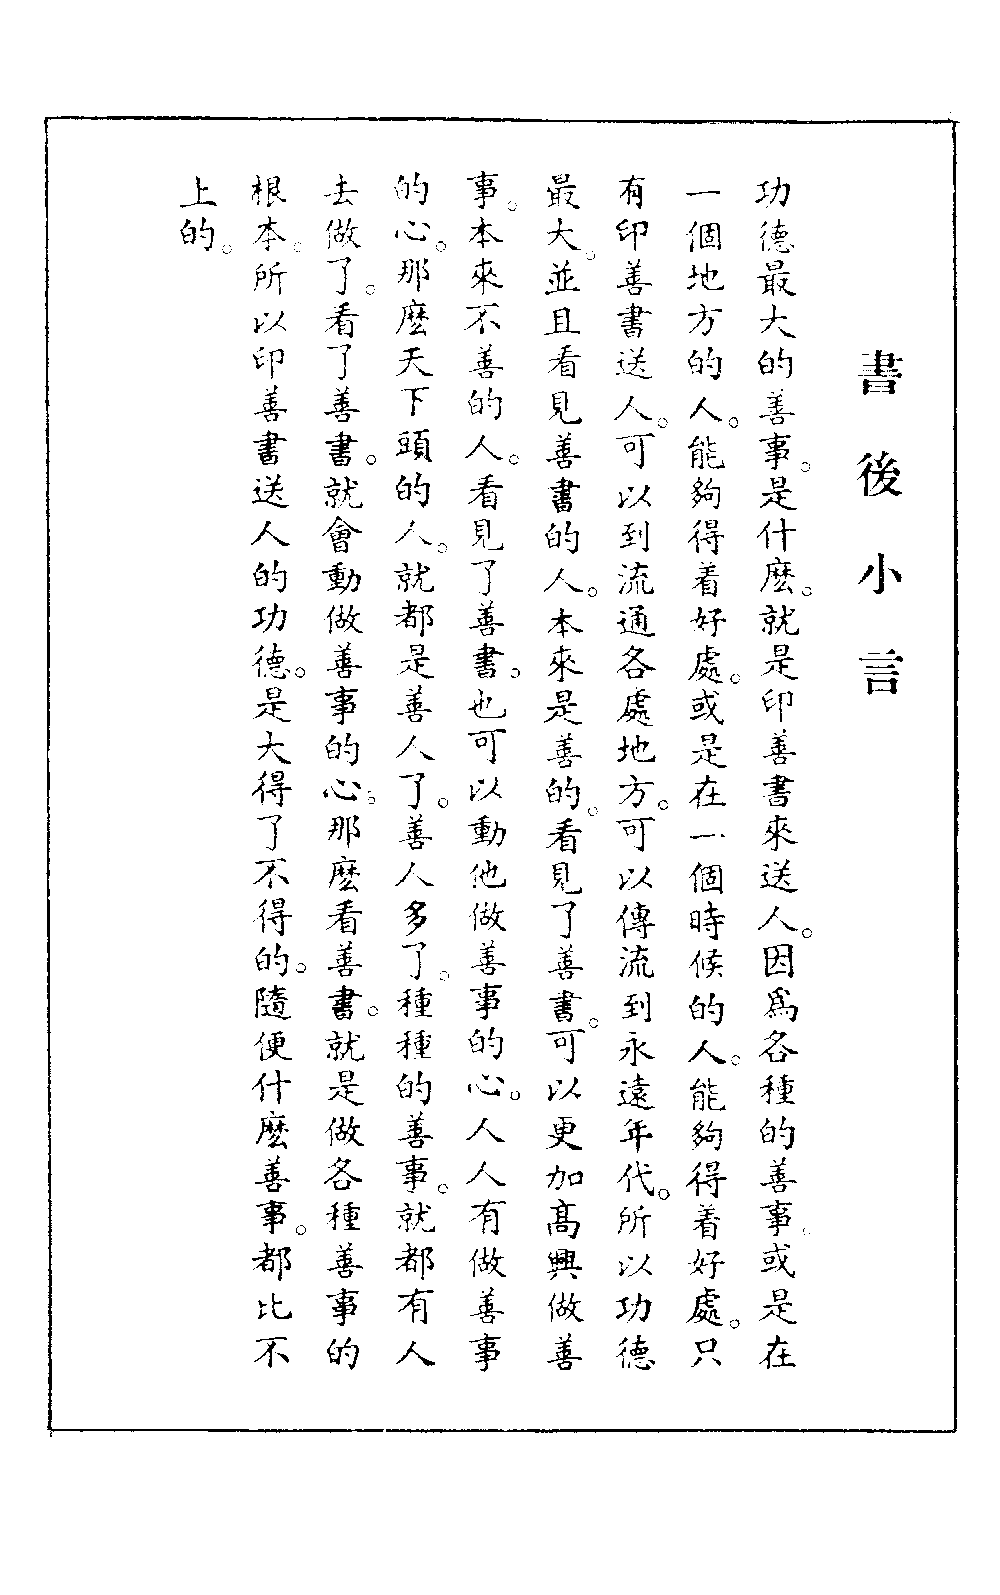 書後小言
功德最大的善事。是什麽。就是印善書來送人。因爲各種的善事。或是在
一個地方的人。能夠得着好處。或是在一個時候的人。能夠得着好處。只
有印善書送人。可以到流通各處地方。可以傳流到永遠年代。所以功德
最大。並且看見善書的人。本來是善的。看見了善書。可以更加高興做善
事。本來不善的人。看見了善書。也可以動他做善事的心。人人有做善事
的心。那麽天下頭的人。就都是善人了。善人多了。種種的善事。就都有人
去做了。看了善書。就會動做善事的心。那麽看善書。就是做各種善事的
根本。所以印善書送人的功德。是大得了不得的。隨便什麽善事。都比不
上的。